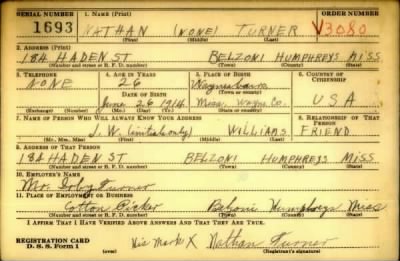 SERIAL NUMBER 1. NAME (Print) ORDER NUMBER
1693 NATHAN (NONE) TURNER V3080
(First) (Middle) (Last)
2. ADDRESS (Print)
184 HADEN ST BELZONI HUMPHREYS MISS
(Number and street or R. F. D. number) (Town) (County) (State)
3. TELEPHONE 4. AGE IN YEARS 5. PLACE OF BIRTH 6. COUNTRY OF CITIZENSHIP
NONE 26 Waynesboro
DATE OF BIRTH (Town or county)
June 26 1914 Miss. Wayne Co. USA
(Exchange) (Number) (Mo.) (Day) (Yr.) (State or country)
7. NAME OF PERSON WHO WILL ALWAYS KNOW YOUR ADDRESS 8. RELATIONSHIP OF THAT PERSON
J. W. (initial only) WILLIAMS FRIEND
(Mr., Mrs., Miss) (First) (Middle) (Last)
9. ADDRESS OF THAT PERSON
184 HADEN ST BELZONI HUMPHREYS MISS
(Number and street or R. F. D. number) (Town) (County) (State)
10. EMPLOYER'S NAME
Mr. Turner
11. PLACE OF EMPLOYMENT OR BUSINESS
Cotton Picker Belzoni Humphreys Miss
(Number and street or R. F. D. number) (Town) (County) (State)
I AFFIRM THAT I HAVE VERIFIED ABOVE ANSWERS AND THAT THEY ARE TRUE.
REGISTRATION CARD
D. S. S. Form 1 (over) his mark X Nathan Turner
(Registrant's signature)